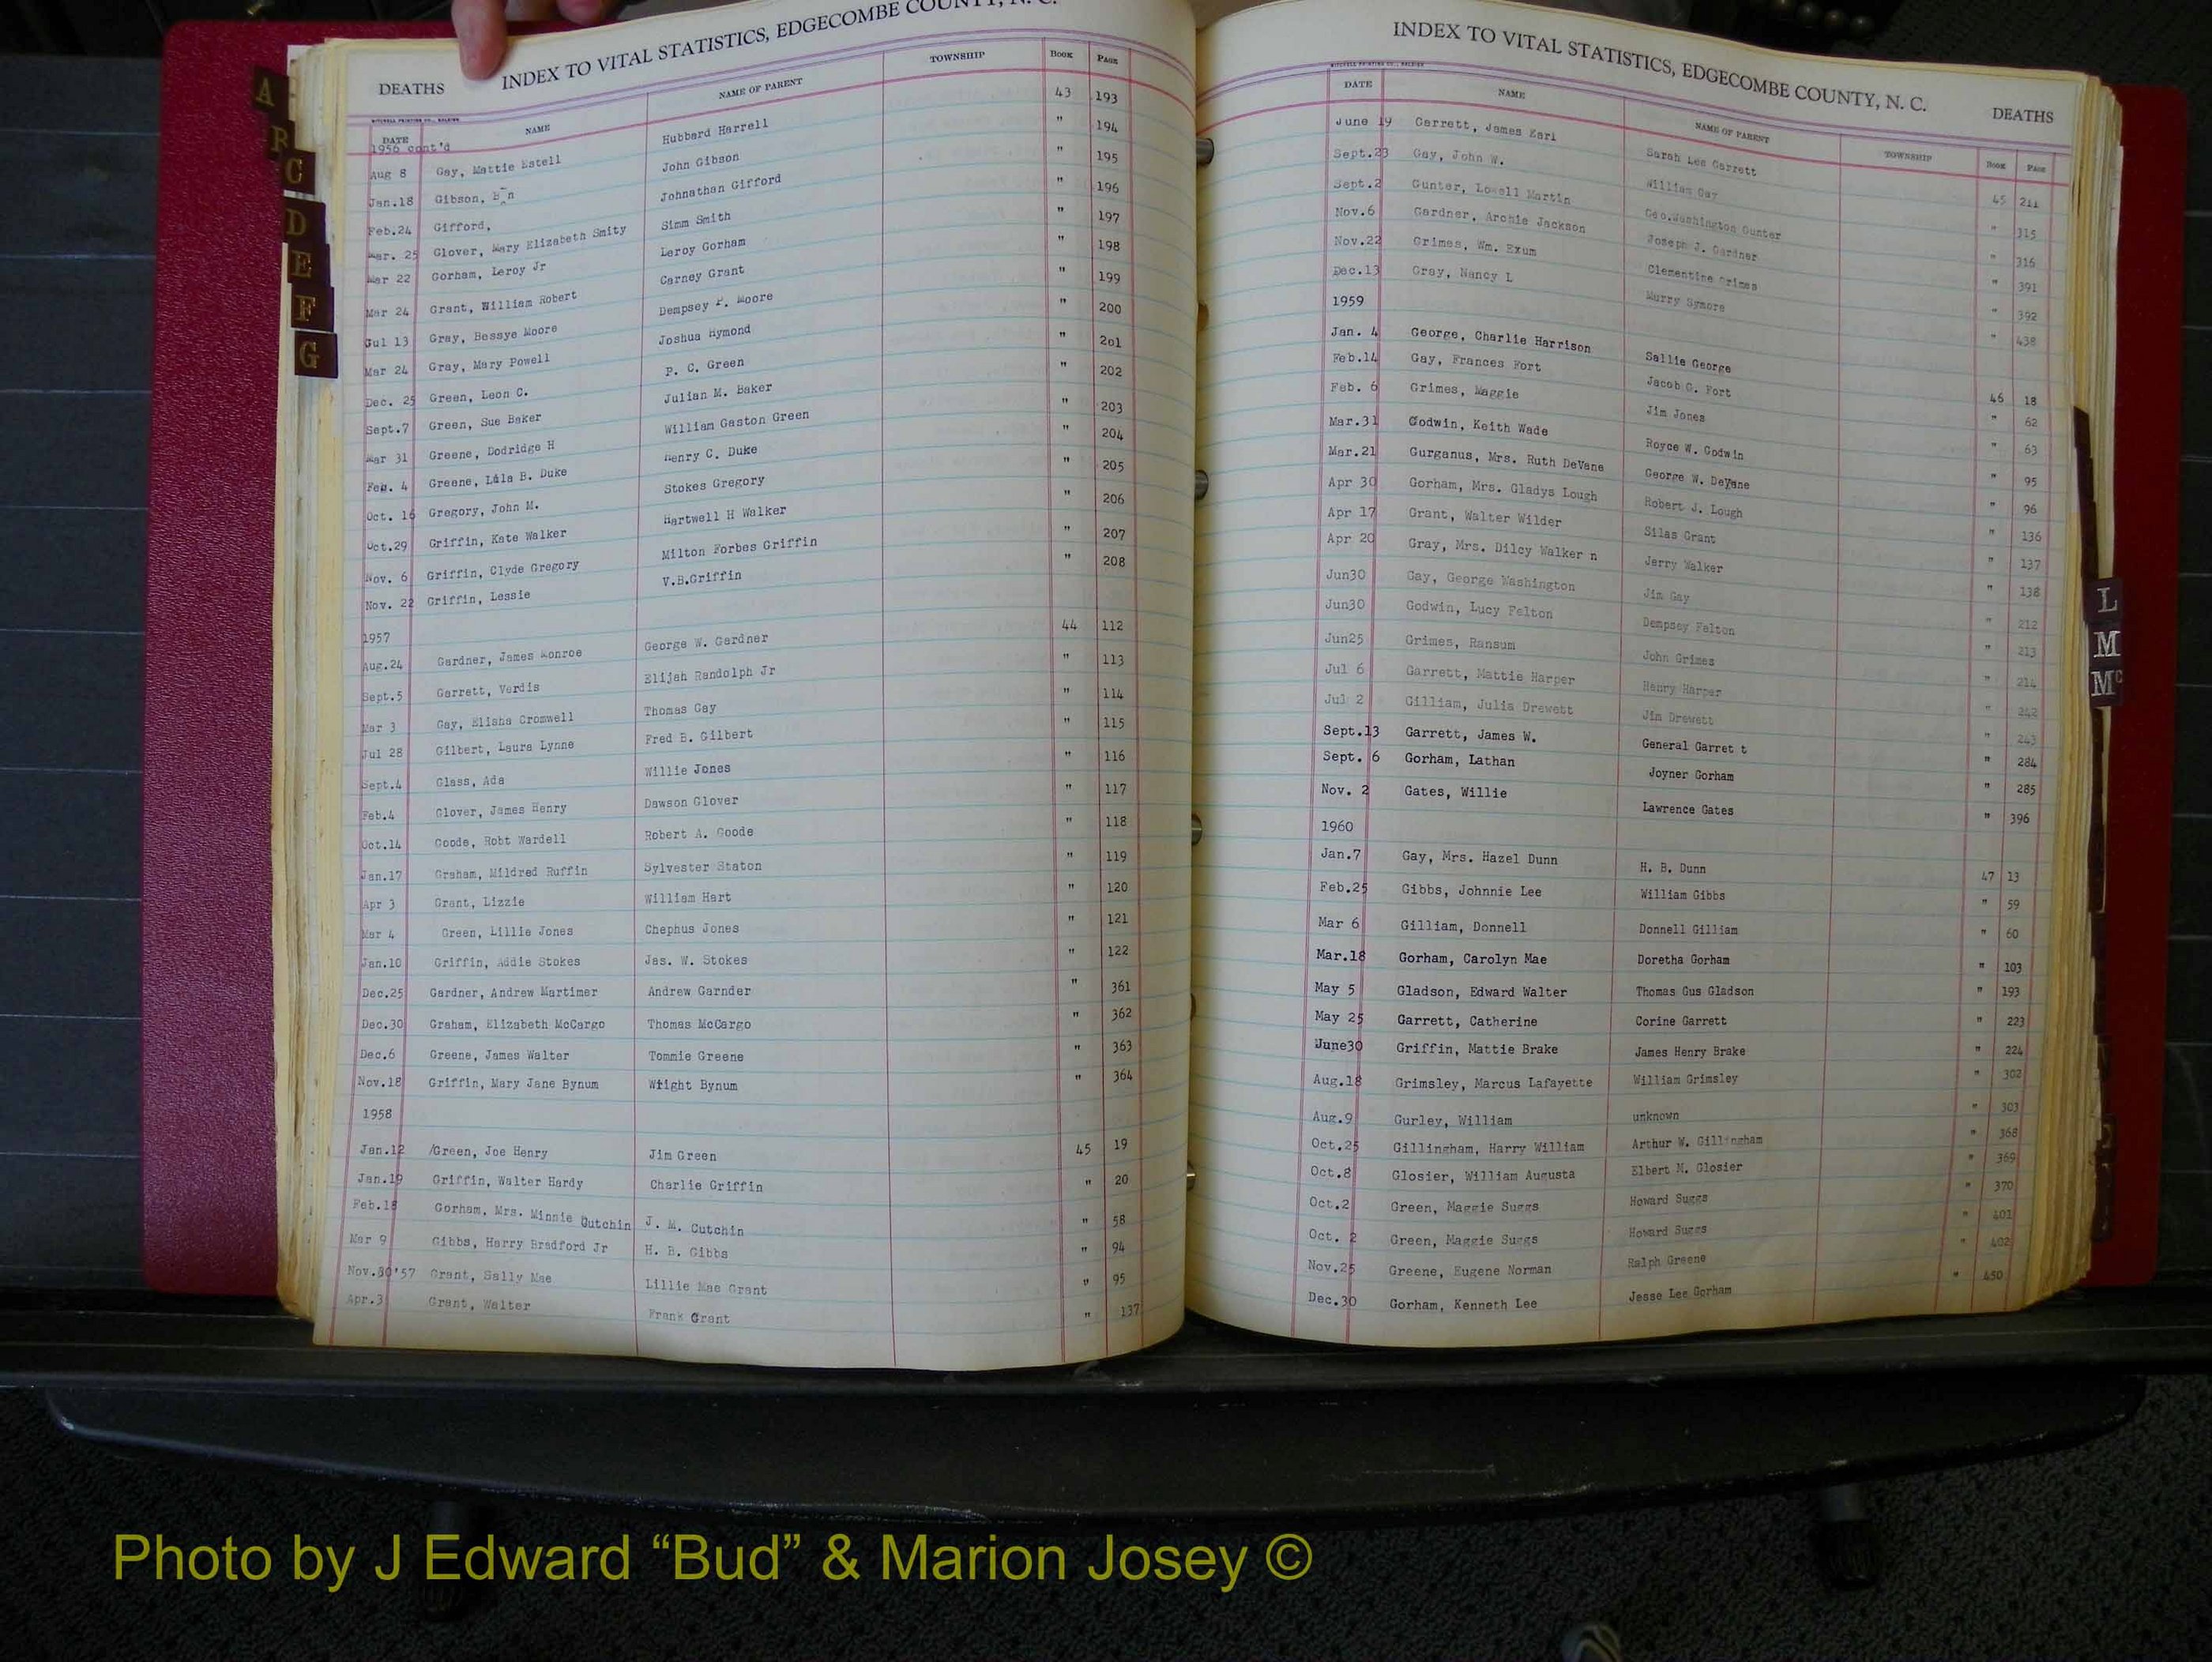 INDEX TO VITAL STATISTICS, EDGECOMBE COUNTY, N. C.
DEATHS
MITCHELL PRINTING CO., RALEIGH
DATE NAME NAME OF PARENT TOWNSHIP BOOK PAGE
1956 cont'd
Aug 8 Gay, Mattie Estell Hubbard Harrell 43 193
Jan.18 Gibson, Ben John Gibson " 194
Feb.24 Gifford, Johnathan Gifford " 195
Mar. 25 Glover, Mary Elizabeth Smity Simm Smith " 196
Mar 22 Gorham, Leroy Jr Leroy Gorham " 197
Mar 24 Grant, William Robert Carney Grant " 198
Jul 13 Gray, Bessye Moore Dempsey P. Moore " 199
Mar 24 Gray, Mary Powell Joshua Hymond " 200
Dec. 25 Green, Leon C. P. C. Green " 201
Sept.7 Green, Sue Baker Julian M. Baker " 202
Mar 31 Greene, Dodridge H William Gaston Green " 203
Feb. 4 Greene, Lula B. Duke Henry C. Duke " 204
Oct. 16 Gregory, John M. Stokes Gregory " 205
Oct.29 Griffin, Kate Walker Hartwell H Walker " 206
Nov. 6 Griffin, Clyde Gregory Milton Forbes Griffin " 207
Nov. 22 Griffin, Lessie V.B.Griffin " 208
1957
Aug.24 Gardner, James Monroe George W. Gardner 44 112
Sept.5 Garrett, Verdis Elijah Randolph Jr " 113
Mar 3 Gay, Elisha Cromwell Thomas Gay " 114
Jul 28 Gilbert, Laura Lynne Fred B. Gilbert " 115
Sept.4 Glass, Ada Willie Jones " 116
Feb.4 Glover, James Henry Dawson Glover " 117
Oct.14 Goode, Robt Wardell Robert A. Goode " 118
Jan.17 Graham, Mildred Ruffin Sylvester Staton " 119
Apr 3 Grant, Lizzie William Hart " 120
Mar 4 Green, Lillie Jones Chephus Jones " 121
Jan.10 Griffin, Addie Stokes Jas. W. Stokes " 122
Dec.25 Gardner, Andrew Martimer Andrew Garnder " 361
Dec.30 Graham, Elizabeth McCargo Thomas McCargo " 362
Dec.6 Greene, James Walter Tommie Greene " 363
Nov.18 Griffin, Mary Jane Bynum Wright Bynum " 364
1958
Jan.12 /Green, Joe Henry Jim Green 45 19
Jan.19 Griffin, Walter Hardy Charlie Griffin " 20
Feb.18 Gorham, Mrs. Minnie Cutchin J. M. Cutchin " 58
Mar 9 Gibbs, Harry Bradford Jr H. B. Gibbs " 94
Nov.30'57 Grant, Sally Mae Lillie Mae Grant " 95
Apr.3 Grant, Walter Frank Grant " 137
INDEX TO VITAL STATISTICS, EDGECOMBE COUNTY, N. C.
DEATHS
MITCHELL PRINTING CO., RALEIGH
DATE NAME NAME OF PARENT TOWNSHIP BOOK PAGE
June 19 Garrett, James Earl Sarah Lee Garrett 45 211
Sept.23 Gay, John W. William Gay " 315
Sept.2 Gunter, Lowell Martin Geo.Washington Gunter " 316
Nov.6 Gardner, Archie Jackson Joseph J. Gardner " 391
Nov.22 Grimes, Wm. Exum Clementine Grimes " 392
Dec.13 Gray, Nancy L Murry Symore " 438
1959
Jan. 4 George, Charlie Harrison Sallie George 46 18
Feb.14 Gay, Frances Fort Jacob G. Fort " 62
Feb. 6 Grimes, Maggie Jim Jones " 63
Mar.31 Godwin, Keith Wade Royce W. Godwin " 95
Mar.21 Gurganus, Mrs. Ruth DeVane George W. DeVane " 96
Apr 30 Gorham, Mrs. Gladys Lough Robert J. Lough " 136
Apr 17 Grant, Walter Wilder Silas Grant " 137
Apr 20 Gray, Mrs. Dilcy Walker n Jerry Walker " 138
Jun30 Gay, George Washington Jim Gay " 212
Jun30 Godwin, Lucy Felton Dempsey Felton " 213
Jun25 Grimes, Ransum John Grimes " 214
Jul 6 Garrett, Mattie Harper Henry Harper " 242
Jul 2 Gilliam, Julia Drewett Jim Drewett " 243
Sept.13 Garrett, James W. General Garret t " 284
Sept. 6 Gorham, Lathan Joyner Gorham " 285
Nov. 2 Gates, Willie Lawrence Gates " 396
1960
Jan.7 Gay, Mrs. Hazel Dunn H. B. Dunn 47 13
Feb.25 Gibbs, Johnnie Lee William Gibbs " 59
Mar 6 Gilliam, Donnell Donnell Gilliam " 60
Mar.18 Gorham, Carolyn Mae Doretha Gorham " 103
May 5 Gladson, Edward Walter Thomas Gus Gladson " 193
May 25 Garrett, Catherine Corine Garrett " 223
June30 Griffin, Mattie Brake James Henry Brake " 224
Aug.18 Grimsley, Marcus Lafayette William Grimsley " 302
Aug.9 Gurley, William unknown " 303
Oct.25 Gillingham, Harry William Arthur W. Gillingham " 368
Oct.8 Glosier, William Augusta Elbert N. Glosier " 369
Oct.2 Green, Maggie Suggs Howard Suggs " 370
Oct. 2 Green, Maggie Suggs Howard Suggs " 401
Nov.25 Greene, Eugene Norman Ralph Greene " 402
Dec.30 Gorham, Kenneth Lee Jesse Lee Gorham " 450
A
C
D
E
F
G
L
M
Mc
Photo by J Edward “Bud” & Marion Josey ©